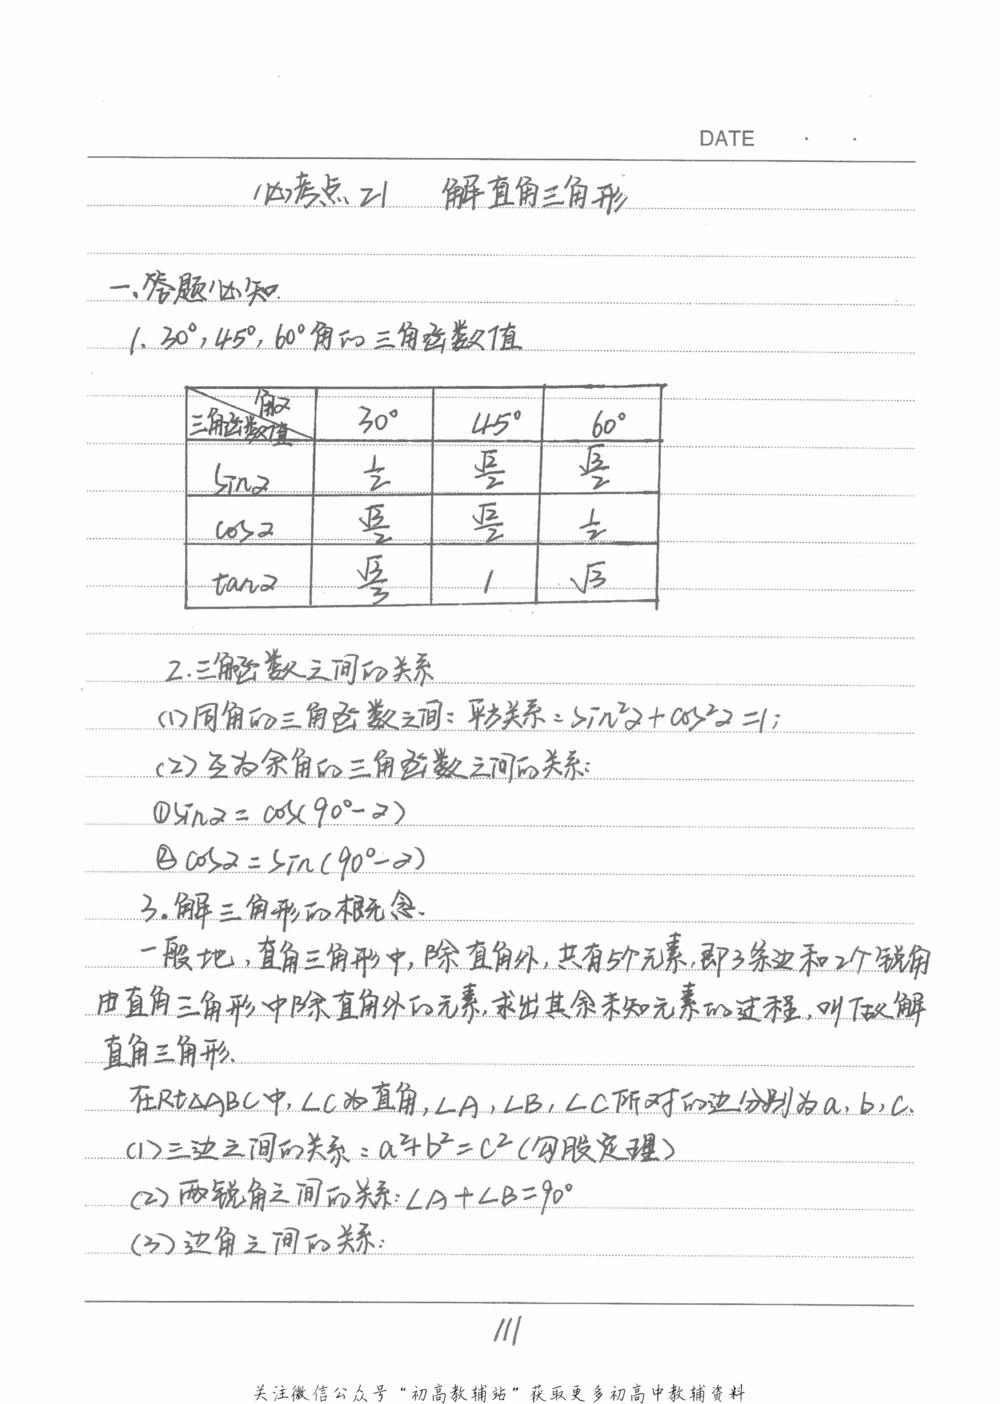 DATE · ·
必考点21 解直角三角形
一、答题必知.
1. 30°, 45°, 60°角的三角函数值
角α
三角函数值
30° 45° 60°
sinα 1/2 √2/2 √3/2
cosα √3/2 √2/2 1/2
tanα √3/3 1 √3
2.三角函数之间的关系
(1)同角的三角函数之间: 平方关系: sin²α+cos²α=1;
(2)互为余角的三角函数之间的关系:
①sinα=cos(90°-α)
②cosα=sin(90°-α)
3.解三角形的概念.
一般地, 直角三角形中, 除直角外, 共有5个元素, 即3条边和2个锐角
由直角三角形中除直角外的元素, 求出其余未知元素的过程, 叫做解
直角三角形.
在Rt△ABC中, ∠C为直角, ∠A, ∠B, ∠C所对的边分别为a, b, c.
(1)三边之间的关系: a²+b²=c²(勾股定理)
(2)两锐角之间的关系: ∠A+∠B=90°
(3)边角之间的关系:
111
关注微信公众号“初高教辅站”获取更多初高中教辅资料